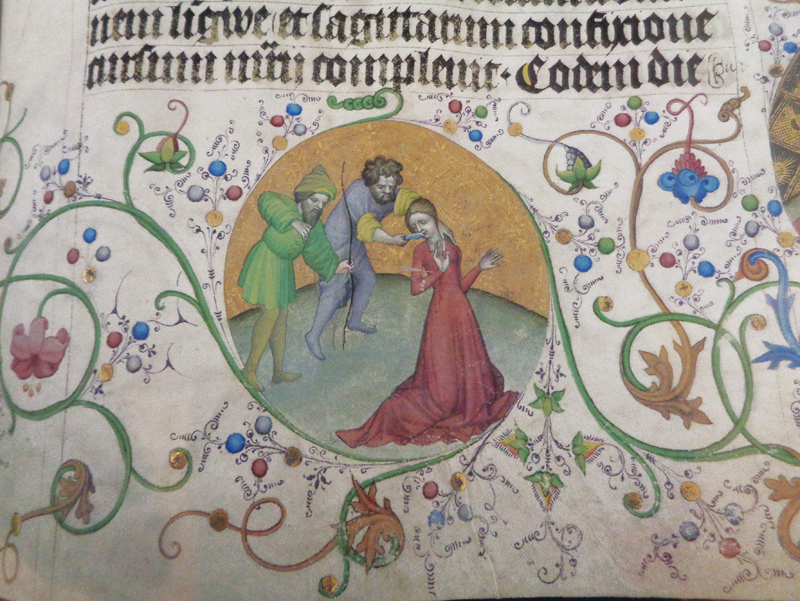 nem ligwe et sagittarum confixione
cursum mr̄ij compleuit · Eodem die